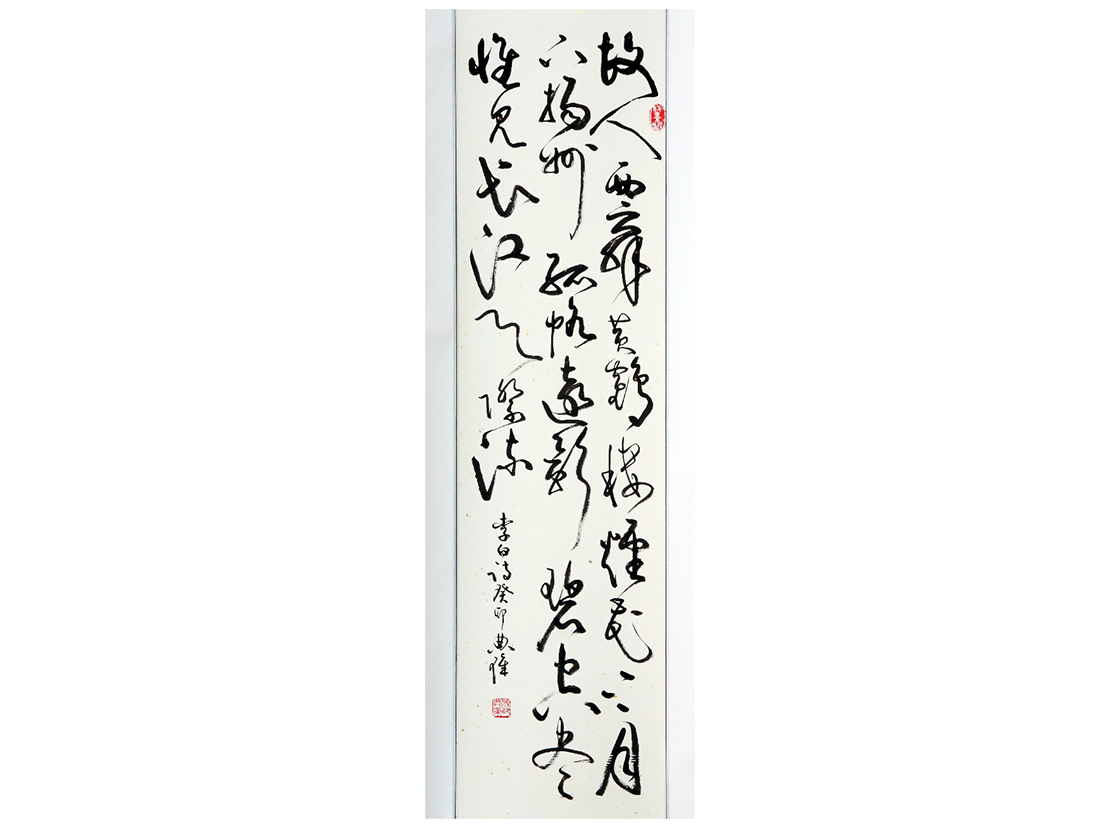 故人西辭黃鶴樓煙花三月
下揚州孤帆遠影碧空尽
惟見长江天際流
李白詩癸卯典